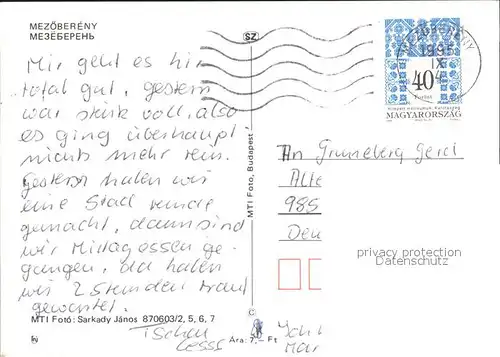 MEZŐBERÉNY
МЕЗЕБЕРЕНЬ
SZ
Mir geht es hir
total gut, gestern
war stark voll, also
es ging überhaupt
nichts mehr rein.
Gestern haben wir
eine Stad runde
gemacht, dann sind
wir Mittagessen ge-
gangen, da haben
wir 2 Stunden drauf
gewartet.
MTI Fotó: Sarkady János 870603/2, 5, 6, 7
Tschau
MTI Foto, Budapest
Ára: 7,- Ft
1995
IX
40
Forint
MAGYARORSZÁG
An Gruneberg Gerd
Alte
985
Deu
privacy protection
Datenschutz